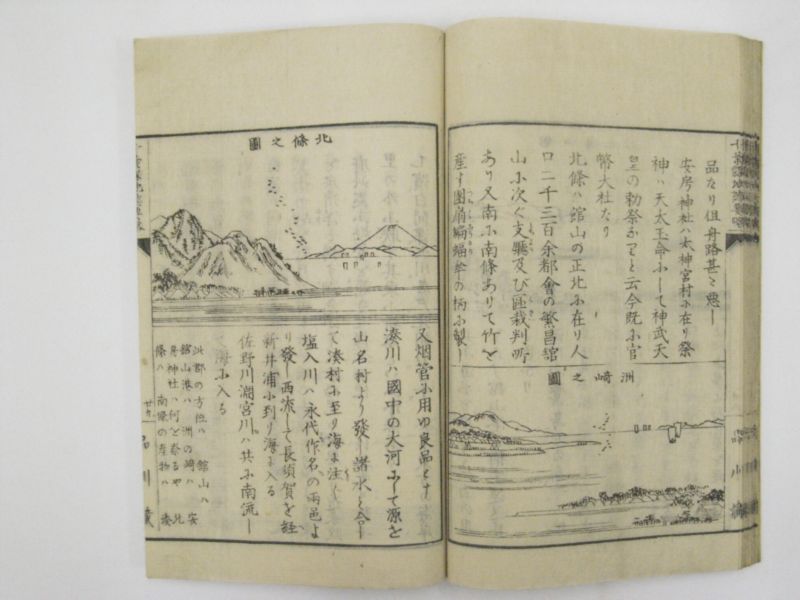 品なり但舟路甚と悪し
安房神社ハ太神宮村ふ在り祭
神ハ天太玉命ふして神武天
皇の勅祭ありと云今既ふ官
幣大社たり
北條ハ館山の正北ふ在り人
口二千三百余都會の繁昌舘
山ふ次く支廳及び區裁判所
あり又南ふ南條ありて竹を
産す團扇蝙蝠傘の柄ふ製し
洲崎之圖
北條之圖
又烟管ふ用ゆ良品とす
湊川ハ國中の大河ふして源を
山名村より發し諸水と合し
て湊村ふ至り海ふ注く
塩入川ハ永代作名の両邑よ
り發し西流して長須賀を経
新井浦ふ到り海ふ入る
佐野川瀬宮川ハ共ふ南流し
海ふ入る
此郡の方位ハ 館山ハ
舘山港ハ 洲の崎ハ 安
房神社ハ何を祭るや 北
條ハ 南條の産物ハ 湊